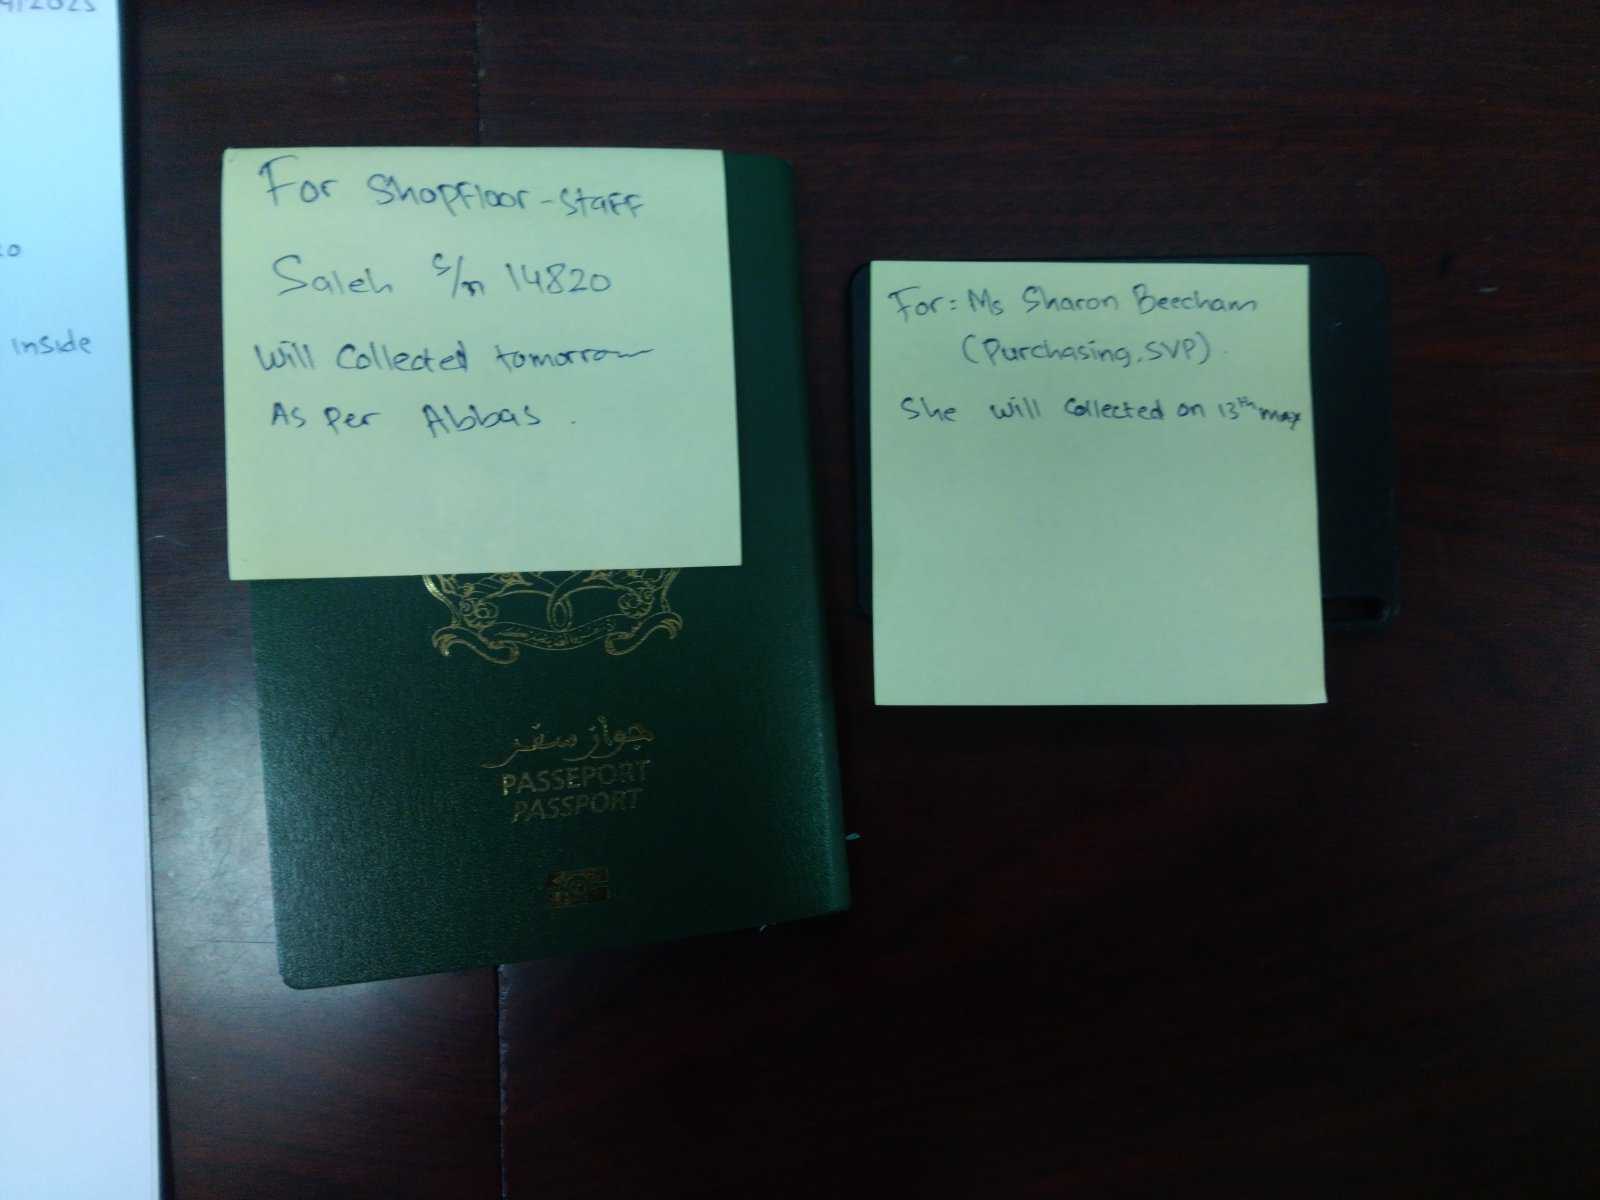 inside
For Shopfloor-staff
Saleh S/n 14820
Will Collected tomorrow
As Per Abbas.
جواز سفر
PASSEPORT
PASSPORT
For: Ms Sharon Beecham
(Purchasing, SVP).
She will collected on 13th may